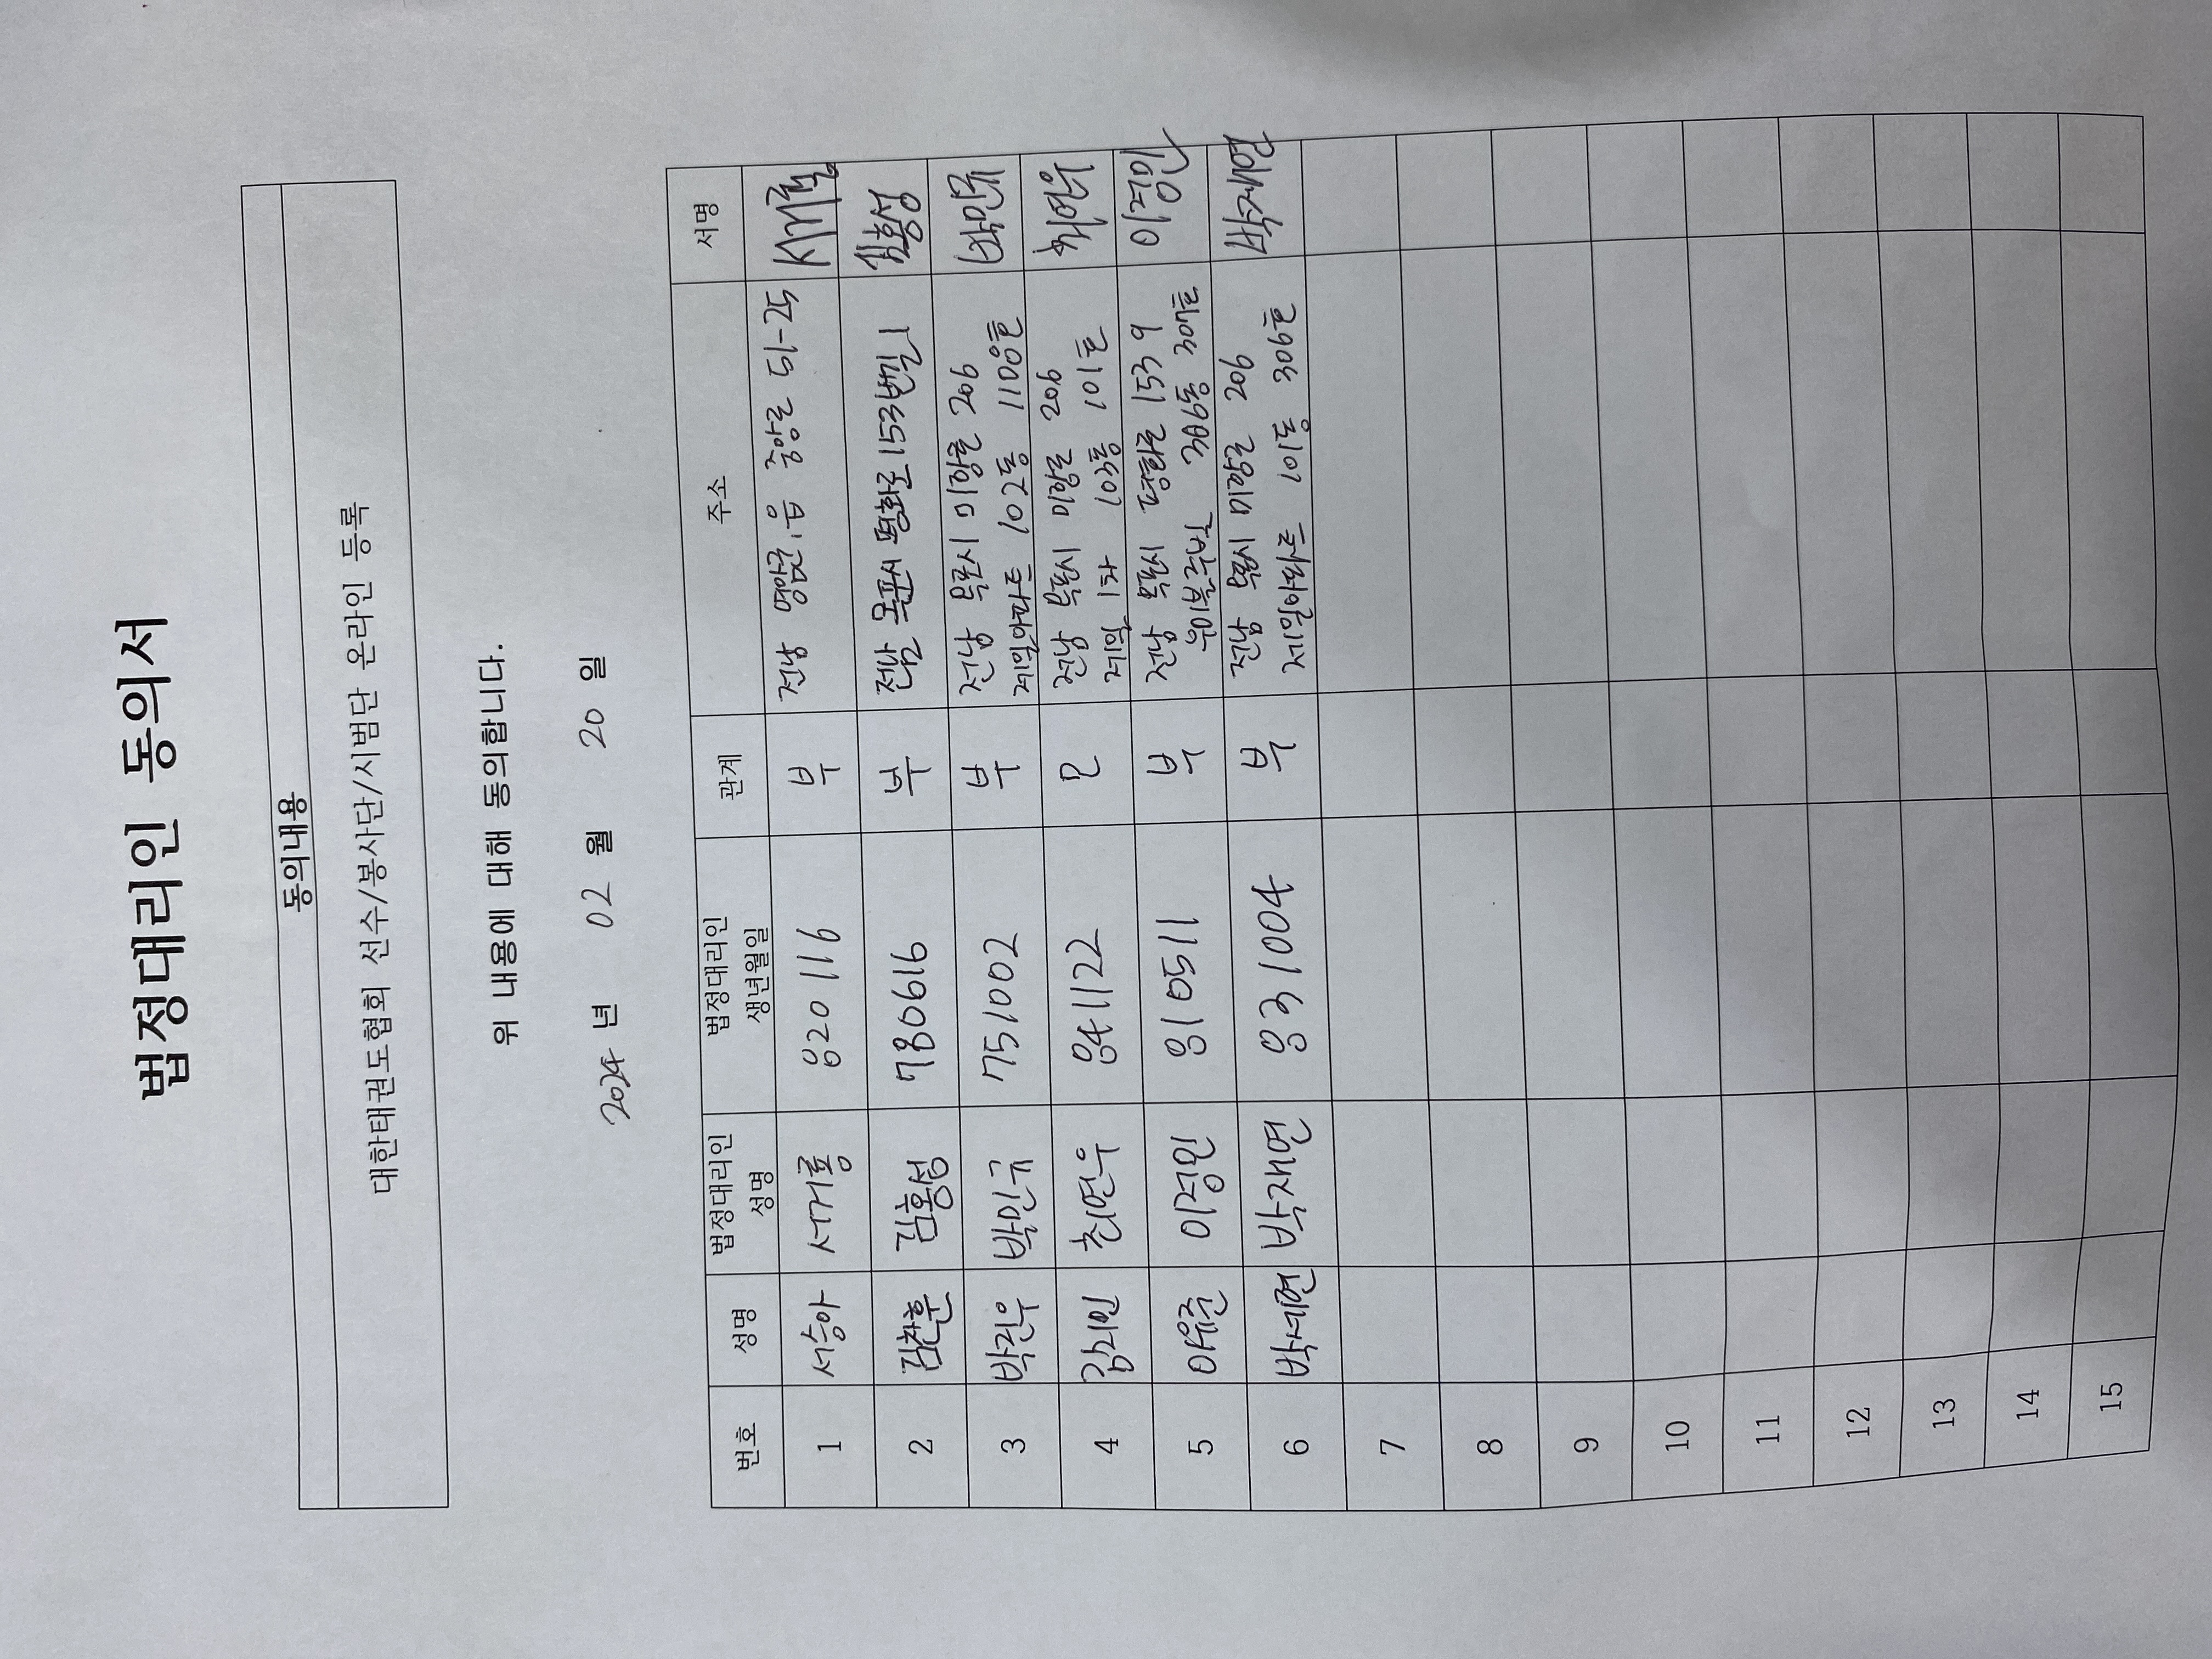 법정대리인 동의서
동의내용
대한태권도협회 선수/봉사단/시범단 온라인 등록
위 내용에 대해 동의합니다.
2024 년 02 월 20 일
번호 성명 법정대리인 성명 법정대리인 생년월일 관계 주소 서명
1 서승아 서거룡 820116 부 전남 영암군.읍 중앙로 51-25
2 김찬훈 김홍성 780616 부 전남 목포시 평화로153번길 1 김홍성
3 박진우 박민규 751002 부 전남 목포시 미항로 206 박민규
제일아파트 102동 1108호
4 김지민 최연우 841122 모 전남 목포시 미항로 206 최연우
제일 1차 103동 101호
5 이유준 이정민 810511 부 전남 목포시 평화로 153 9 이정민
3096동 304호
6 박세연 박재연 831004 부 전남 목포시 미항로 206 박재연
101동 309호
7
8
9
10
11
12
13
14
15